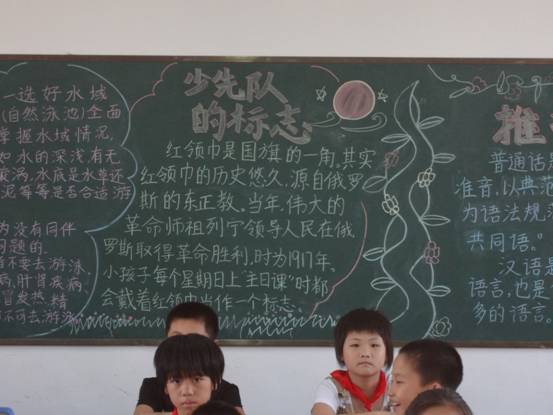 一选好水域
(自然泳池)全面
掌握水域情况,
如水的深浅有无
漩涡,水底是水草还
泥等等是否合适游
为没有同伴
问题的.
不要去游泳,
病,肝肾疾病,
冒发热,精
不可去游泳
少先队
的标志
红领巾是国旗的一角,其实
红领巾的历史悠久,源自俄罗
斯的东正教。当年,伟大的
革命师祖列宁领导人民在俄
罗斯取得革命胜利,时为1917年。
小孩子每个星期日上“主日课”时都
会戴着红领巾当作一个标志。
推
普通话
准音,以典范
为语法规范
共同语。”
汉语是
语言,也是
多的语言。